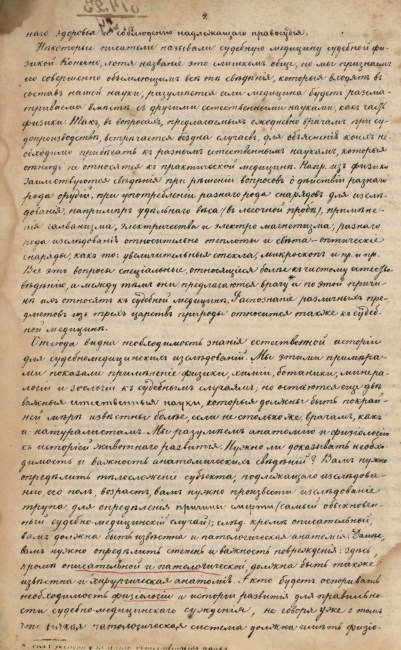 2
наго здоровья и соблюденію надлежащаго правосудія.
Нѣкоторые писатели называли судебную медицину судебной фи-
зикой. Конечно, хотя названіе это слишкомъ обще, но мы признаемъ
его совершенно объемлющимъ всѣ тѣ свѣдѣнія, которыя входятъ въ
составъ нашей науки, разумѣется если медицина будетъ разсма-
триваема вмѣстѣ съ другими естественными науками, какъ часть
физики. Такъ, въ вопросахъ, предлагаемыхъ ежедневно врачамъ при су-
допроизводствѣ, встрѣчается бездна случаевъ, для объясненія коихъ не-
обходимо прибѣгать къ разнымъ естественнымъ наукамъ, которыя
отнюдь не относятся къ практической медицинѣ. Напр. изъ физики
заимствуются свѣдѣнія при рѣшеніи вопросовъ о дѣйствіи разнаго
рода орудій, при употребленіи разнаго рода снарядовъ для изслѣ-
дованія, напримѣръ удѣльнаго вѣса (въ легочной пробѣ), примѣне-
нія галванизма, электричества и электромагнетизма, разнаго
рода изслѣдованій относительно теплоты и свѣта – оптическіе
снаряды, какъ то: увеличительныя стекла, микроскопъ и пр. и пр.
Все это вопросы спеціальные, относящіеся болѣе къ чистому естество-
вѣденію, а между тѣмъ они предлагаются врачу и по этой причи-
нѣ ихъ относятъ къ судебной медицинѣ. Распознаніе различныхъ пре-
дметовъ изъ трехъ царствъ природы относится также къ судеб-
ной медицинѣ.
Отсюда видна необходимость знанія естественной исторіи
для судебномедицинскихъ изслѣдованій. Мы этими примѣра-
ми показали примѣненіе физики, химіи, ботаники, минера-
логіи и зоологіи къ судебнымъ случаямъ, но остаются еще двѣ
важныя естественныя науки, которыя должны быть покрай-
ней мѣрѣ извѣстны болѣе, если не столько же, врачамъ, какъ
и натуралистамъ. Мы разумѣемъ анатомію и физіологію
съ исторіей животнаго развитія. Нужно ли доказывать необхо-
димость и важность анатомическихъ свѣдѣній? Вамъ нужно
опредѣлить тѣлосложеніе субъекта, подлежащаго изслѣдова-
нію, его полъ, возрастъ, вамъ нужно произвести изслѣдованіе
трупа, для опредѣленія причины смерти (самый обыкновен-
ный судебно-медицинскій случай); слѣд. кромѣ описательной,
вамъ должна быть извѣстна и патологическая анатомія. Далѣе,
вамъ нужно опредѣлить степень и важность поврежденія: здѣсь,
кромѣ описательной и патологической, должна быть также
извѣстна и хирургическая анатомія. А кто будетъ оспоривать
необходимость физіологіи и исторіи развитія для правильно-
сти судебно-медицинскаго сужденія, не говоря уже о томъ
что всякая патологическая система должна имѣть физіо-